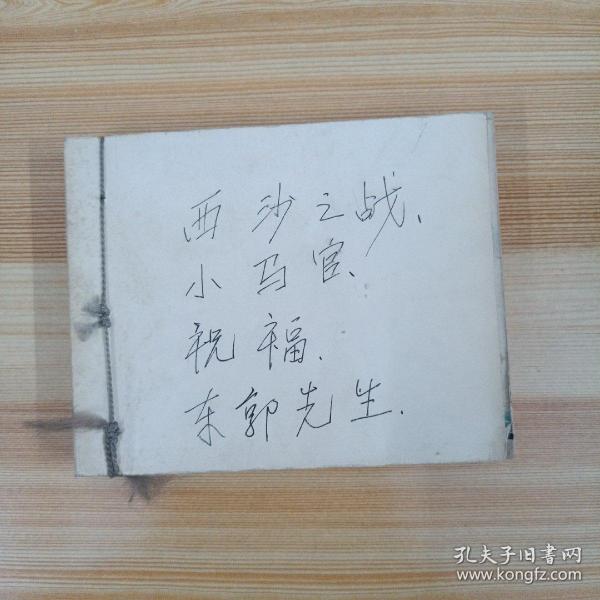 西沙之战、
小马官、
祝福.
东郭先生.
孔夫子旧書网
www.kongfz.com